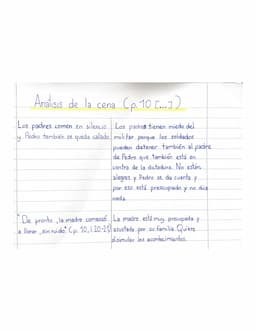 Análisis de la cena (p. 10 [...])
Los padres comen en silencio
y Pedro también se queda callado.
Los padres tienen miedo del
militar porque los soldados
pueden detener también al padre
de Pedro que también está en
contra de la dictadura. No están
alegres y Pedro se da cuenta y
por eso está preocupado y no dice
nada.
"De pronto, la madre comenzó
a llorar, sin ruido." (p. 10, l. 20-21)
La madre está muy preocupada y
asustada por su familia. Quiere
disimular los acontecimientos.